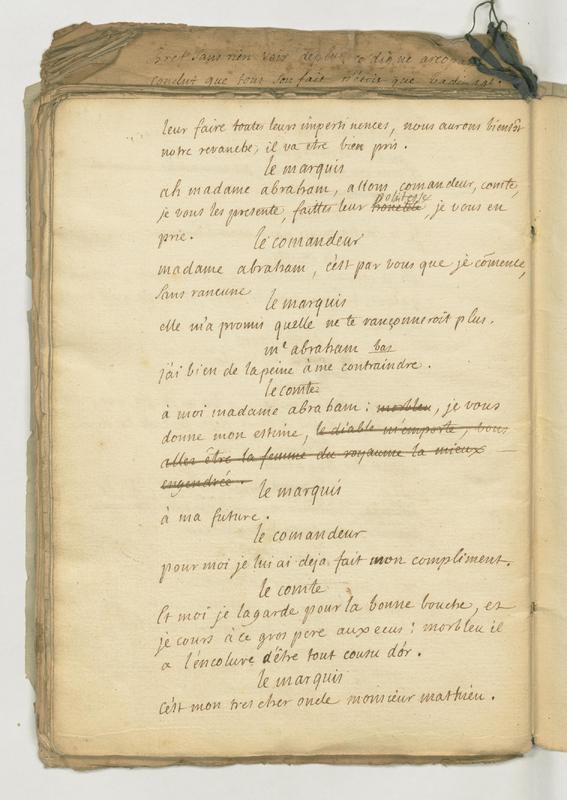 bref sans rien voir de plus ce digne areopage
conclut que tout son fait n'etoit que badinage.
leur faire toutes leurs impertinences, nous aurons bientôt
notre revanche; il va etre bien pris.
le marquis
ah madame abraham, allons, comandeur, comte,
politesse
je vous les presente, faittes leur honetete, je vous en
prie.
le comandeur
madame abraham, c'est par vous que je cõmence,
sans rancune
le marquis
elle m'a promis quelle ne te rançonneroit plus.
me abraham bas
j'ai bien de la peine à me contraindre.
le comte
à moi madame abraham: morbleu, je vous
donne mon estime, le diable m'emporte, vous
allez être la femme du royaume la mieux
engendrée.
le marquis
à ma future.
le comandeur
pour moi je lui ai deja fait mon compliment.
le comte
Et moi je la garde pour la bonne bouche, et
je cours à ce gros pere aux ecus: morbleu il
a l'encolure d'être tout cousu d'or.
le marquis
c'est mon tres cher oncle monsieur mathieu.